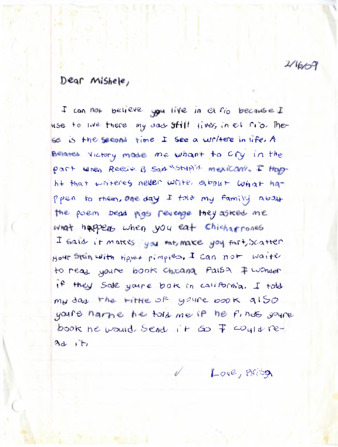 2/16/09
Dear Mishele,
I can not believe you live in el rio because I
use to live there my dad still lives, in el rio. The-
se is the second time I see a writere in life. A
Belated Victory made me whant to cry in the
part when Reese is said "stupid mexican". I thoug-
ht that writeres never write about what ha-
ppen to them, one day I told my family about
the poem Dead Pigs revenge they asked me
what happens when you eat Chicharrones
I said it makes you fat, make you fart, scatter
your skin with pimples, I can not waite
to read youre book chicana falsa I wonder
if they sale youre bok in california. I told
my dad the tittle of youre book also
youre name he told me if he finds youre
book he would send it so I could re-
ad it.
Love, Brisa